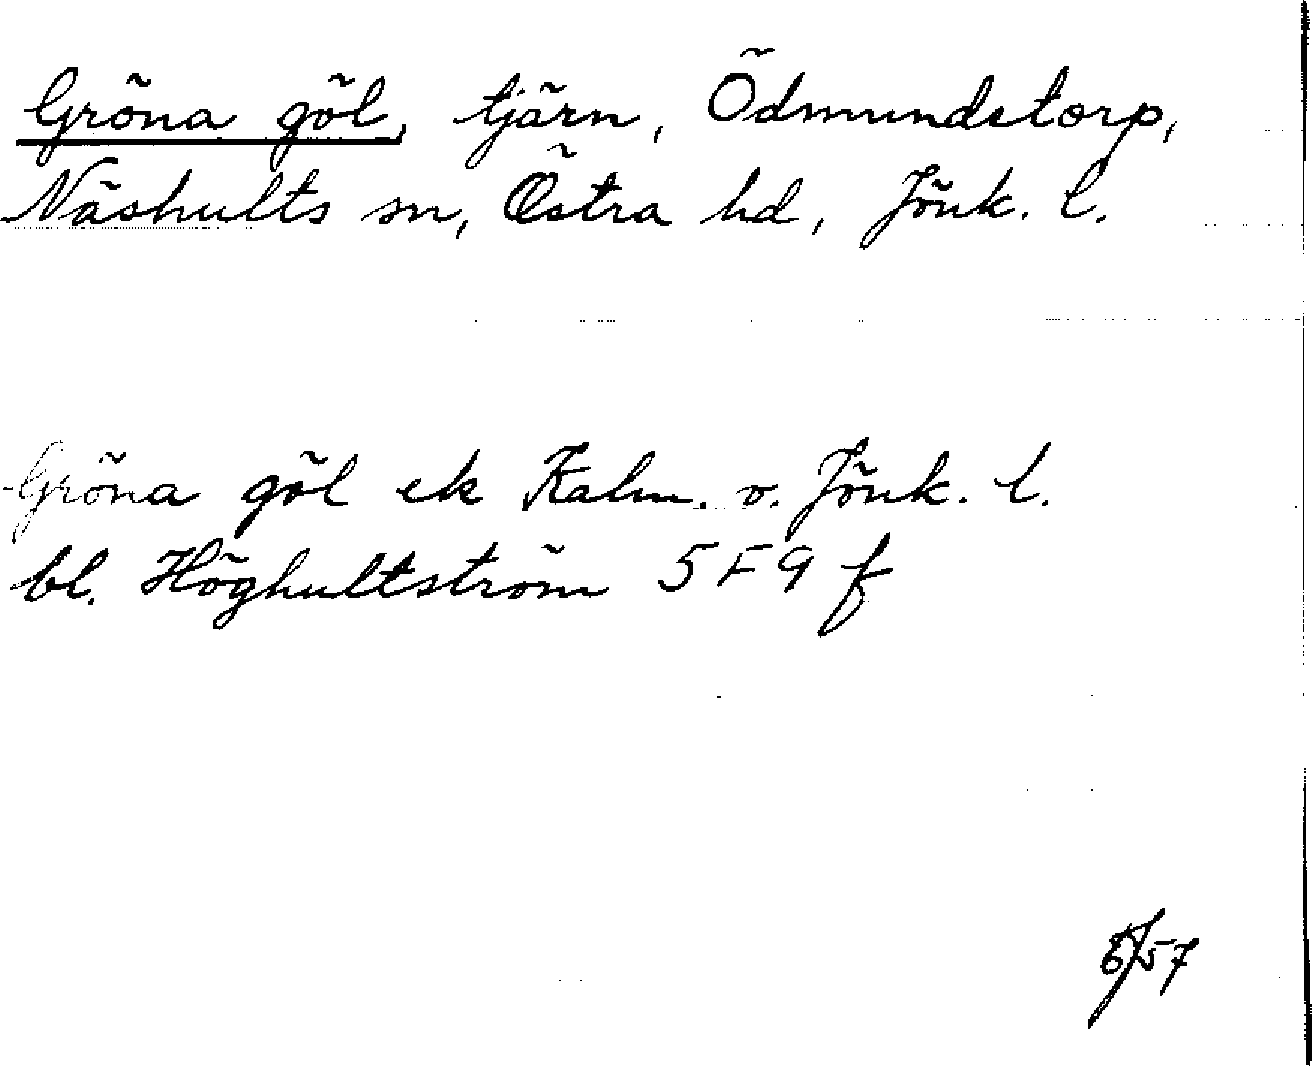 Gröna göl, tjärn, Ödmundetorp,
Näshults sn, Östra hd, Jönk. l.
Gröna göl ek Kalm. o. Jönk. l.
bl. Höghultström 5F9f
6/57